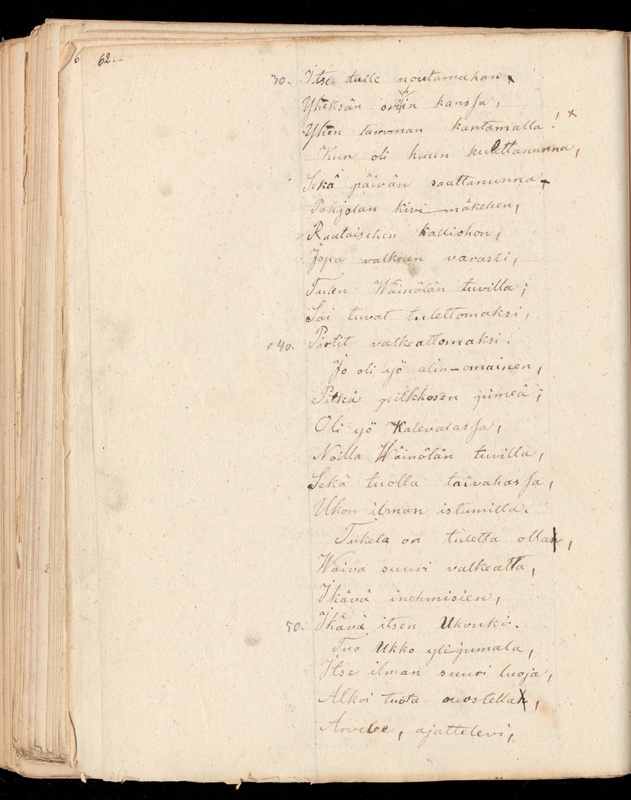 62.
30. Itse tulle noutamahon,
Yheksän orihin kanssa,
Yhen tamman kantamalla.
Kun oli kuun kulettanunna,
Sekä päivän saattanunna
Pohjolan kivi-mäkehen,
Rautaisehen kalliohon,
Jopa valkean varasti,
Tulen Wäinölän tuvilta;
Sai tuvat tulettomaksi,
40. Pirtit valkeattomaksi.
Jo oli yö alin-omainen,
Pitkä pilkkosen pimeä;
Oli yö Kalevalassa,
Noilla Wäinölän tuvilla,
Sekä tuolla taivahassa,
Ukon ilman istumilla.
Tukela on tuletta olla,
Waiva suuri valkeatta,
Ikävä inehmisien,
50. Ikävä itsen Ukonki.
Tuo Ukko yli-jumala,
Itse ilman suuri luoja,
Alkoi tuota ouostella,
Arvelee, ajattelevi,